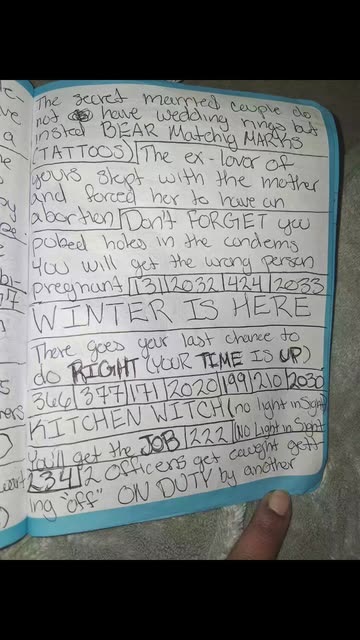 The secret married couple do
not have wedding rings but
insted BEAR Matchig MARKS
(TATTOOS) The ex-lover of
yours slept with the mother
and forced her to have an
abortion Don't FORGET you
poked holes in the condems
you will get the wrong person
pregnant 131 2032 424 2033
WINTER IS HERE
There goes your last chance to
do RIGHT (YOUR TIME IS UP)
366 377 171 2020 199 210 2030
KITCHEN WITCH (no light in Sight)
You'll get the JOB 222 (No Light in Sight)
234 2 Officers get caught gett
ing "off" ON DUTY by another